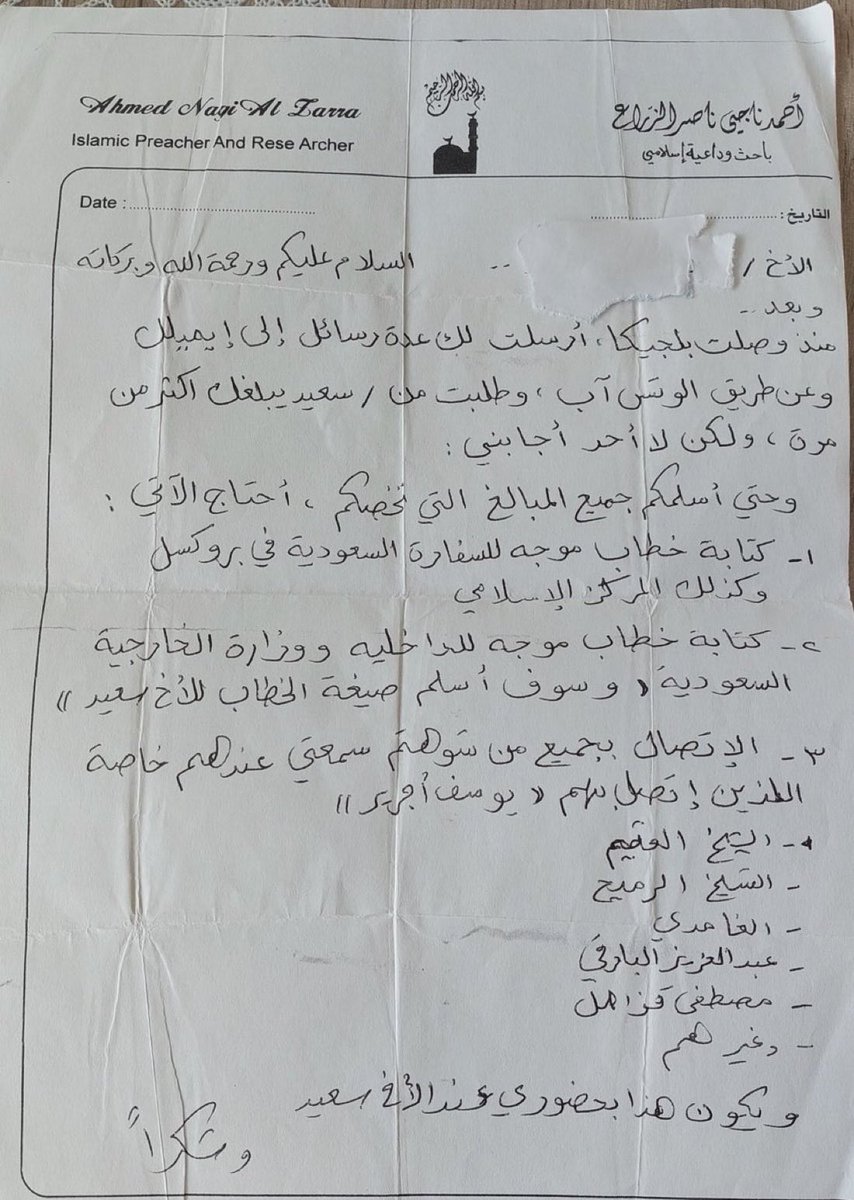 Ahmed Nagi Al Zarra
Islamic Preacher And Rese Archer
بسم الله الرحمن الرحيم
أحمد ناجي ناصر الزراع
باحث وداعية إسلامي
Date :
التاريخ :
الأخ / .. السلام عليكم ورحمة الله وبركاته
وبعد ..
منذ وصلت بلجيكا، أرسلت لك عدة رسائل إلى إيميلك
وعن طريق الوتس آب، وطلبت من / سعيد يبلغك اكثر من
مرة، ولكن لا أحد أجابني :
وحتى أسلمكم جميع المبالغ التي تخصكم، أحتاج الآتي :
١- كتابة خطاب موجه للسفارة السعودية في بروكسل
وكذلك المركز الإسلامي
٢- كتابة خطاب موجه للداخليه ووزارة الخارجية
السعودية « وسوف أسلم صيغة الخطاب للأخ سعيد »
٣- الإتصال بجميع من شوهتم سمعتي عندهم خاصة
اللذين إتصل بهم « يوسف أجرير »
- الشيخ
- الشيخ الرميح
- الغامدي
- عبدالعزيز البارقي
- مصطفى
- وغيرهم
ويكون هذا بحضوري عند الأخ سعيد
وشكراً